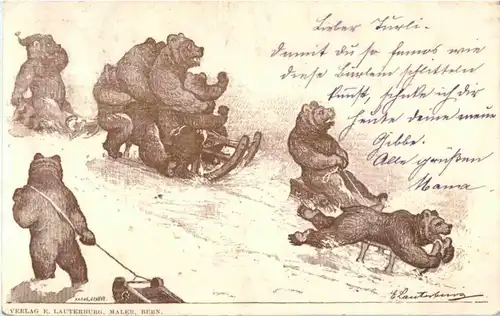 Lieber Turli.
damit du so famos wie
diese Bärlein schlitteln
kannst, schicke ich dir
heute deine neue
Gibbe.
Alle grüssen
Mama
E Lauterburg
VERLAG E. LAUTERBURG, MALER, BERN.